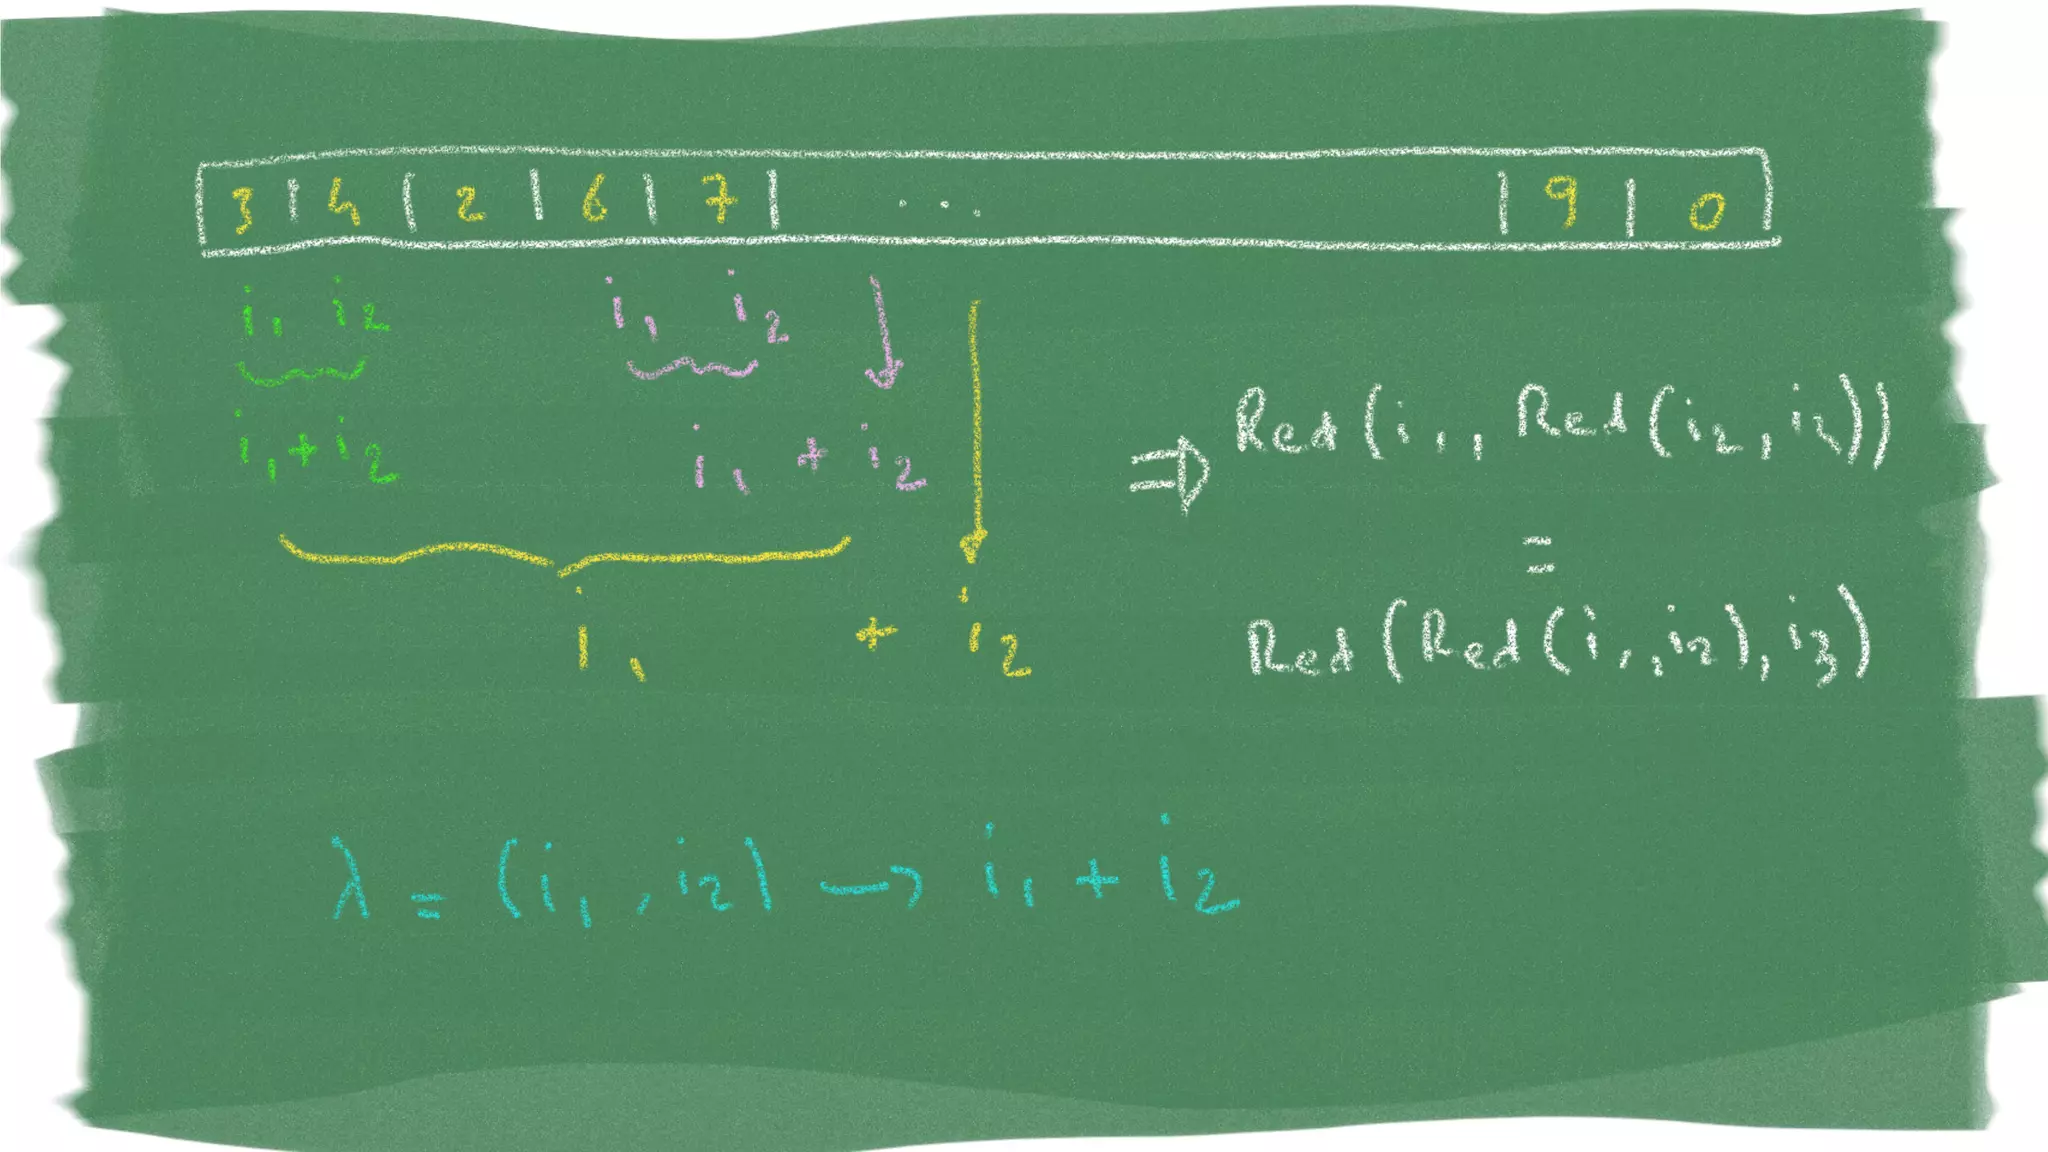 3 | 4 | 2 | 6 | 7 | ... | 9 | 0
i₁ i₂ i₁ i₂
i₁+i₂ i₁ + i₂
i₁ + i₂
⇒ Red(i₁, Red(i₂, i₂))
=
Red(Red(i₁, i₂), i₃)
λ = (i₁, i₂) → i₁ + i₂